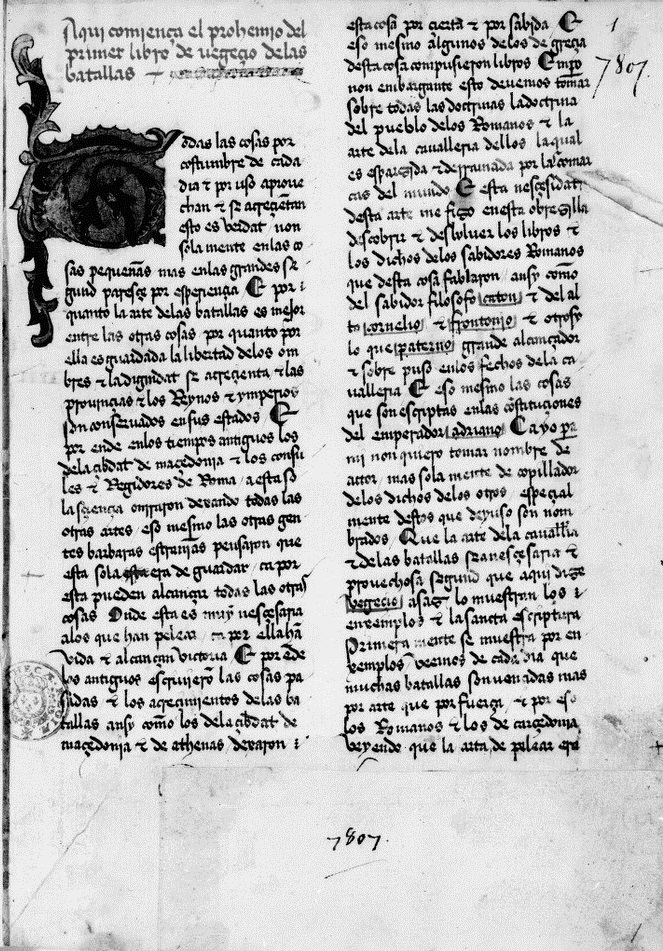 Aqui comiença el prohemio del
primer libro de vegeçio delas
batallas
odas las cosas por
costumbre de cada
dia τ por uso aproue
chan τ se acreçientan
esto es verdat non
sola mente en las co
sas pequeñas mas enlas grandes se
gund paresçe por esperiençia E por
quanto la arte de las batallas es mejor
entre las otras cosas por quanto por
ella es guardada la libertad delos om
bres τ la dignidat se acreçienta τ las
prouinçias τ los Reynos τ ymperios
son conseruados en sus estados E
por ende enlos tiempos antiguos los
dela çibdat de maçedonia τ los consu
les τ Regidores de Roma a esta so
la sçiençia onraron dexando todas las
otras artes eso mesmo las otras gen
tes barbaras estrañas pensaron que
esta sola era de guardar ca por
esta pueden alcançar todas las otras
cosas Onde esta es muy nesçesaria
alos que han pelear ca por ella hã
vida τ alcançan victoria E por ẽde
los antiguos escriuierõ las cosas pa
sadas τ los acreçimientos delas ba
tallas ansy cõmo los dela çibdat de
maçedonia τ de athenas dexaron
esta cosa por çierta τ por sabida E
eso mesmo algunos delos de greçia
desta cosa compusieron libros Empo
non embargante esto deuemos tomar
sobre todas las doctrinas la doctrina
del pueblo delos Romanos τ la
arte dela caualleria dellos la qual
es esparzida τ derramada por las comar
cas del mundo E esta nesçesidat
desta arte me fizo en esta obrezilla
descobrir τ desboluer los libros τ
los dichos de los sabidores Romanos
que desta cosa fablaron ansy cõmo
del sabidor filosofo caton τ del al
to cornelio τ frontonio τ otrosy
lo que paterno grande alcançador
τ sobre puso enlos fechos dela ca
ualleria E eso mesmo las cosas
que son escriptas enlas cõstituçiones
del emperador adriano Ca yo por
mi non quiero tomar nombre de
actor mas sola mente de copillador
delos dichos delos otros espeçial
mente destos que deyuso son nom
brados Que la arte dela cauallia
τ delas batallas sea nesçesaria τ
prouechosa segund que aqui dize
vegeçio asaz lo muestran los
enxemplos τ la sancta escriptura
Primera mente se muestra por en
xemplos veemos de cada dia que
muchas batallas son vençidas mas
por arte que por fuerça τ por eso
los Romanos τ los de carçedonia
veyendo que la arte de pelear era
1
7807.
7807.